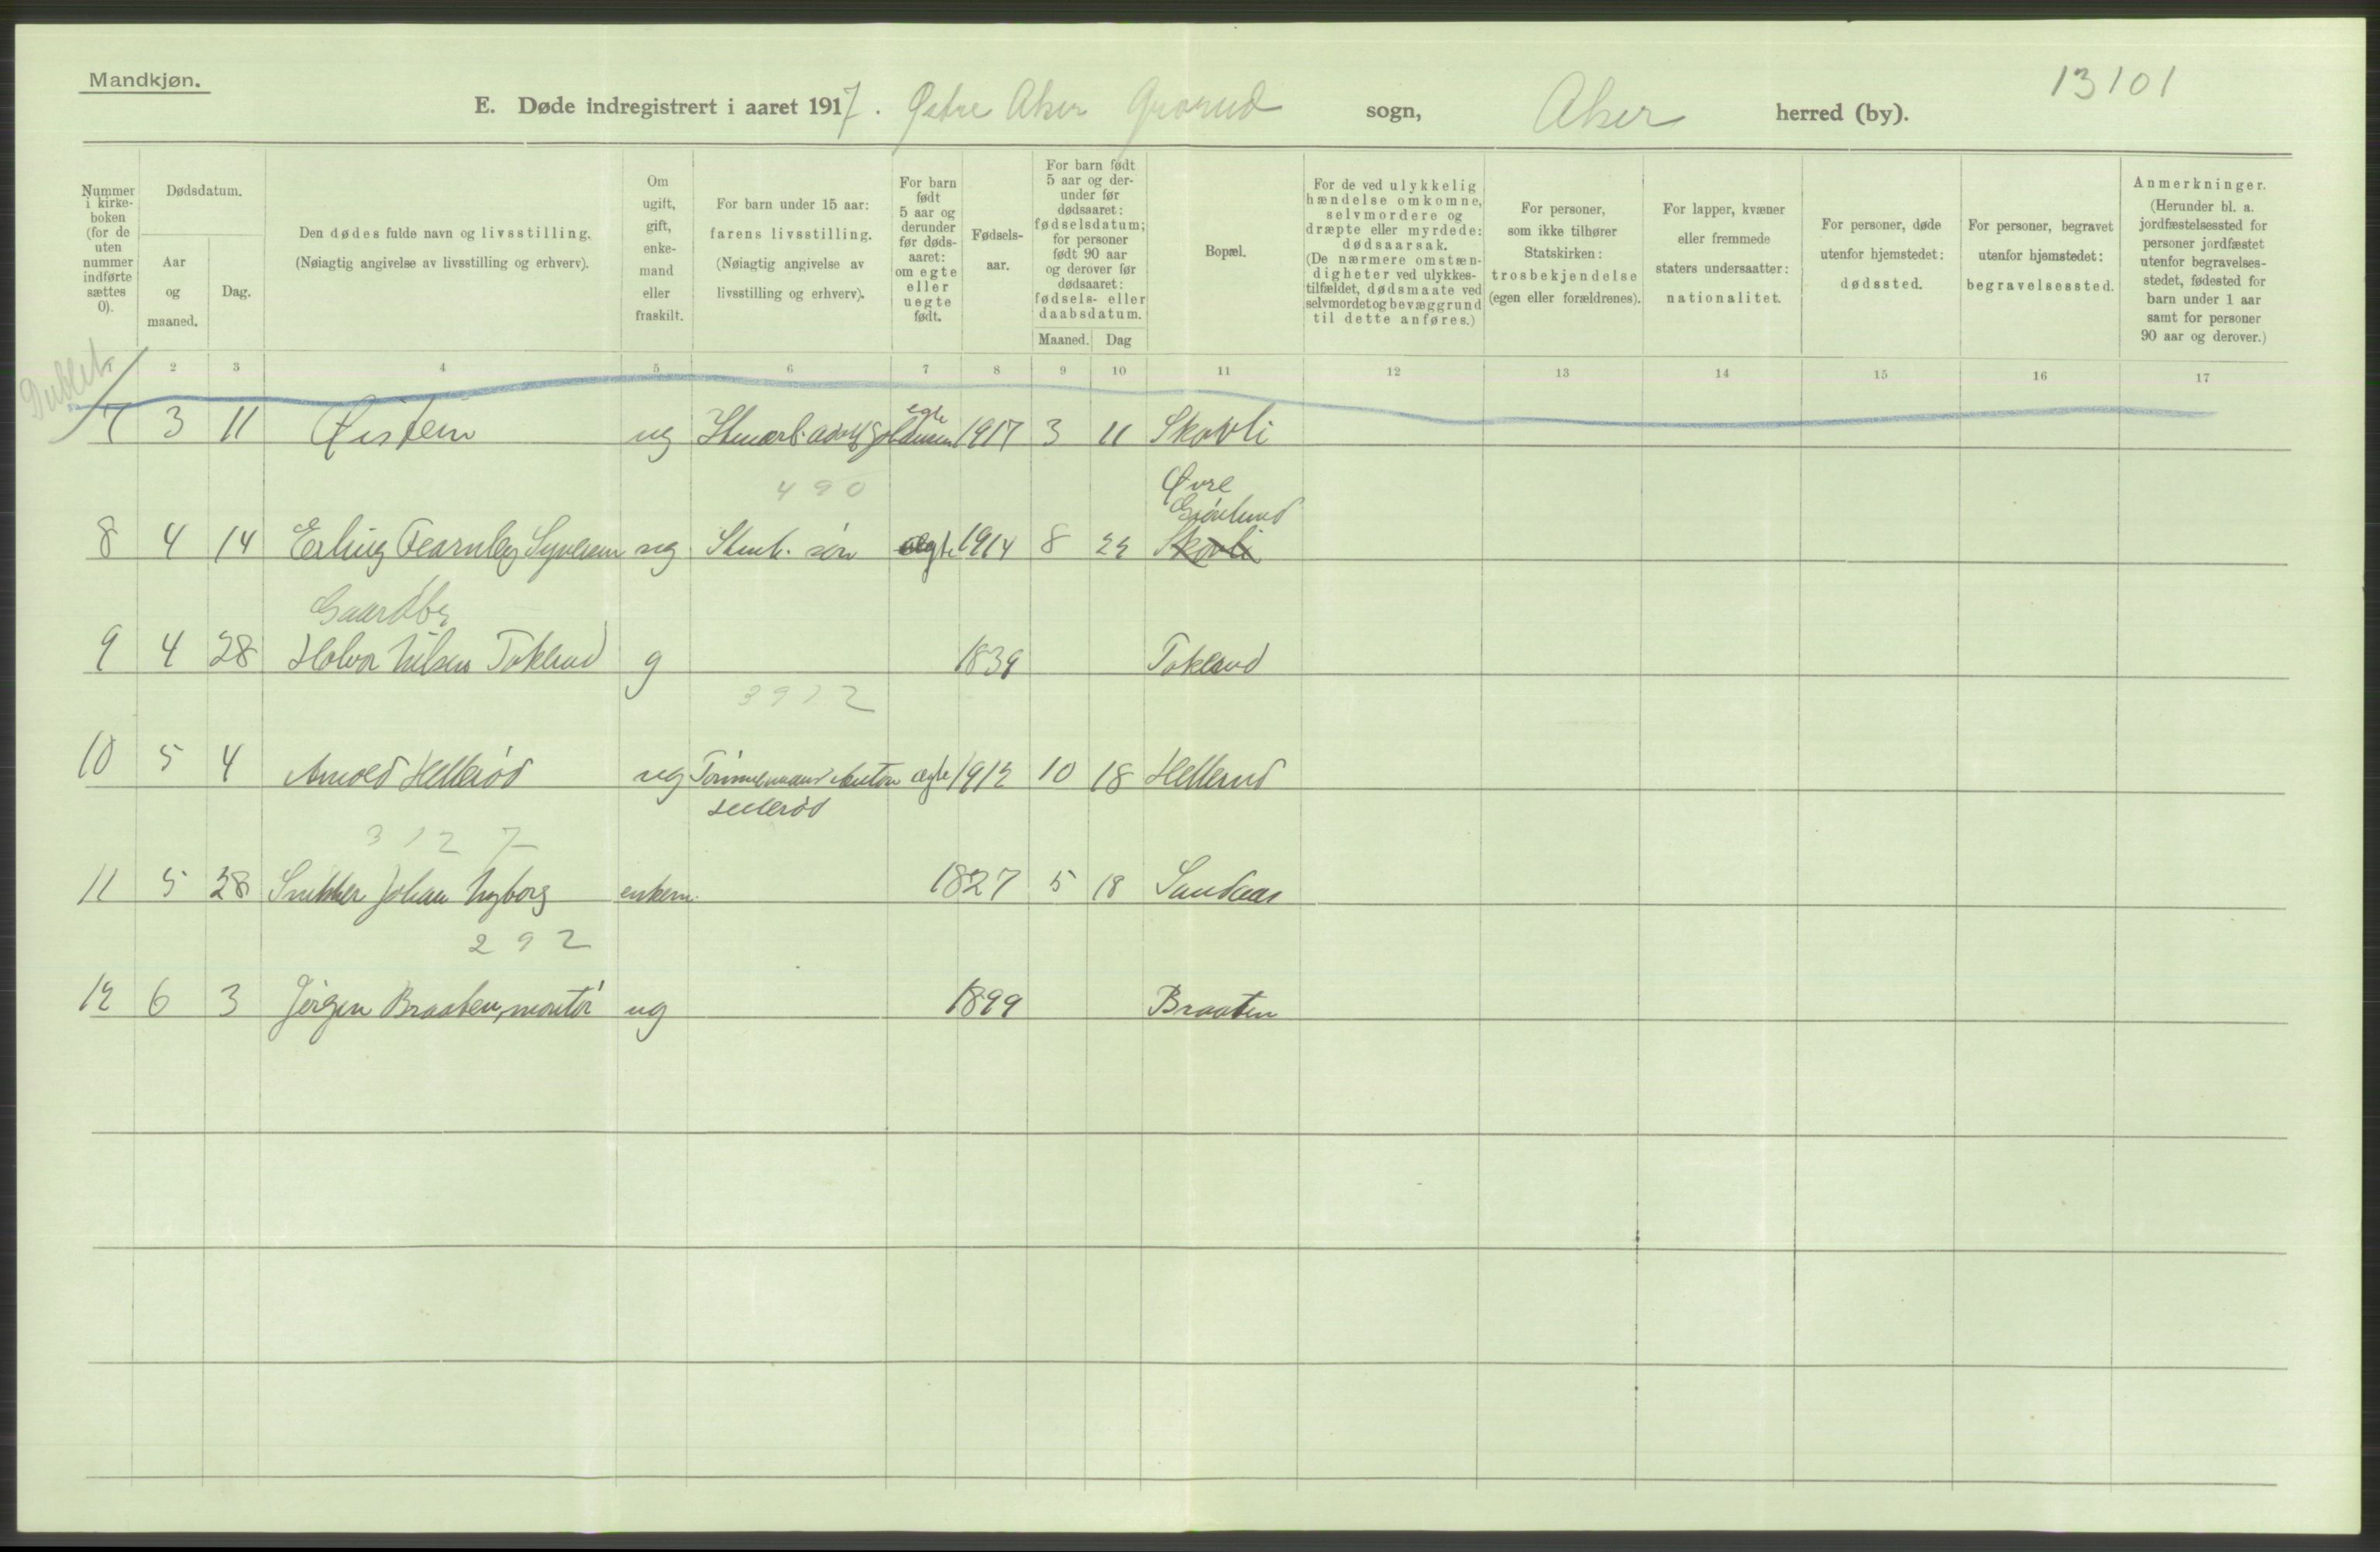 Mandkjøn.
13101
E. Døde indregistrert i aaret 1917. Østre Aker Grorud sogn, Aker herred (by).
Nummer i kirke-boken (for de uten nummer indførte sættes 0).
Dødsdatum.
Aar og maaned.
Dag.
Den dødes fulde navn og livsstilling.
(Nøiagtig angivelse av livsstilling og erhverv).
Om ugift, gift, enke-mand eller fraskilt.
For barn under 15 aar: farens livsstilling.
(Nøiagtig angivelse av livsstilling og erhverv).
For barn født 5 aar og derunder før døds-aaret: om egte eller uegte født.
Fødsels-aar.
For barn født 5 aar og der-under før dødsaaret: fødselsdatum; for personer født 90 aar og derover før dødsaaret: fødsels- eller daabsdatum.
Maaned. Dag
Bopæl.
For de ved ulykkelig hændelse omkomne, selvmordere og dræpte eller myrdede: dødsaarsak.
(De nærmere omstæn-digheter ved ulykkes-tilfældet, dødsmaate ved selvmordet og bevæggrund til dette anføres.)
For personer, som ikke tilhører Statskirken: trosbekjendelse (egen eller forældrenes).
For lapper, kvæner eller fremmede staters undersaatter: nationalitet.
For personer, døde utenfor hjemstedet: dødssted.
For personer, begravet utenfor hjemstedet: begravelsessted.
Anmerkninger.
(Herunder bl. a. jordfæstelsessted for personer jordfæstet utenfor begravelses-stedet, fødested for barn under 1 aar samt for personer 90 aar og derover.)
Dublet
2 3 4 5 6 7 8 9 10 11 12 13 14 15 16 17
egte
7 3 11 Øistein ug Stenarb. Adolf 1917 3 11 Skovli
490
Øvre
Grønlund
8 4 14 Erling Fearnley ug Stenh. søn ægte 1914 8 22 Skovli
Gaardbr
9 4 28 Halvor Nilsen Tokerud g 1839 Tokerud
3912
10 5 4 Arnold Hellerød ug Tømmermand Anton ægte 1912 10 18 Hellerud
Hellerød
3127
11 5 28 Snekker Johan Nyborg enkem. 1827 5 18 Sandaas
292
12 6 3 Jørgen Braaten, montør ug 1899 Braaten